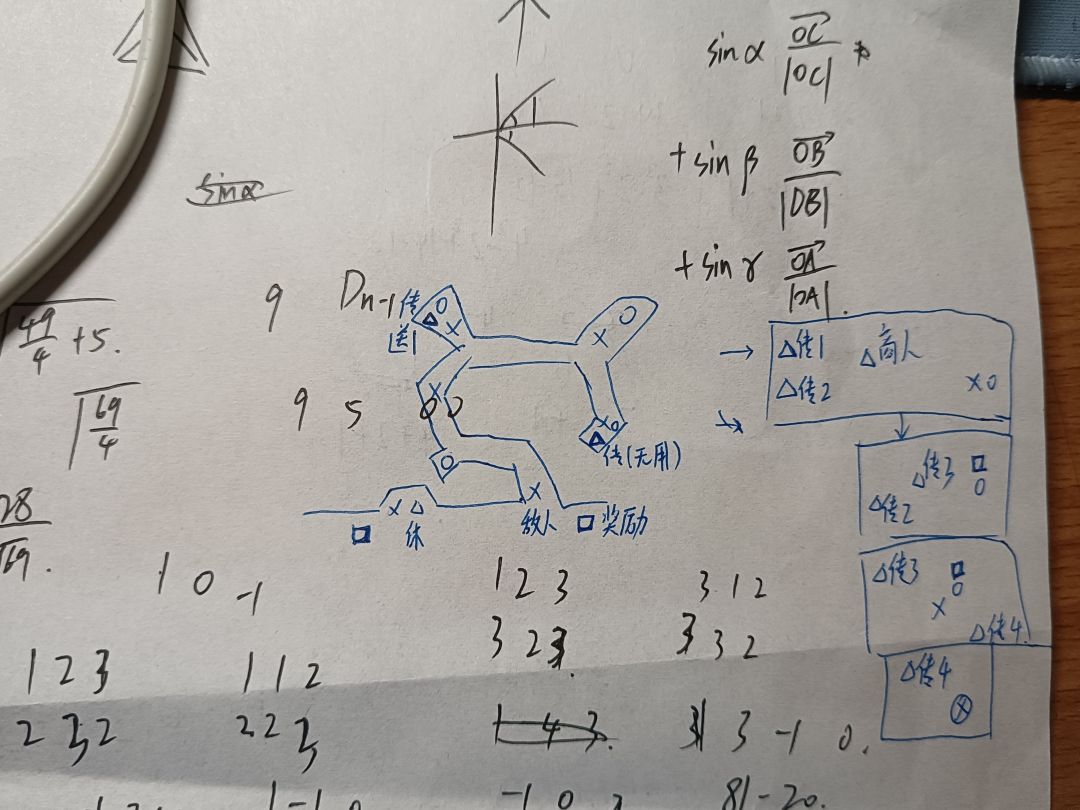 sinα OC/|OC|
+ sin β OB/|OB|
sinα
+ sin γ OA/|OA|.
√49/4 + 5.
9 Dn-1
传送1
△传1 △商人
△传2 ×○
√69/4
9 5 0 0
传(无用)
△传3 □
○
△传2
28/√69.
× △ × □ 奖励
□ 休 敌人
△传3 □
○
×
△传4.
1 0 -1
1 2 3 3 1 2
3 2 3. 3 3 2
△传4
1 2 3 1 1 2
2 3 2 2 2 3
1 4 3. 3 -1 0.
1 -1 0 -1 0 81-20.